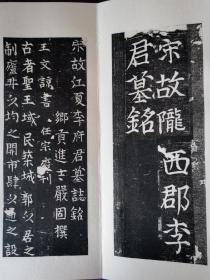 宋故隴西郡李
君墓銘
宋故江夏李府君墓誌銘
鄉貢進士嚴固撰
王文諒書 任宗慶刊
古者聖王域民築城郭以居之
制廬井以均之開市肆以通之設